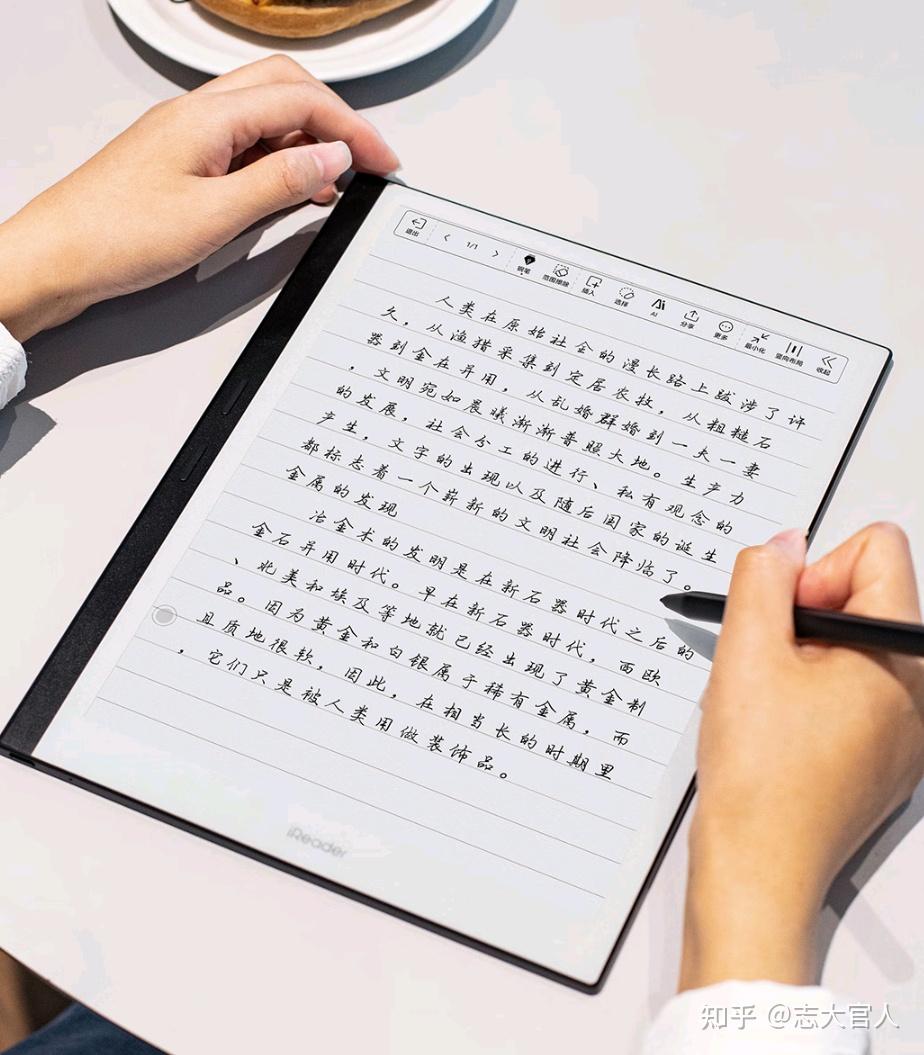 退出 < 1/1 > 钢笔 范围擦除 插入 选择 AI 分享 更多 最小化 竖向布局 收起
人类在原始社会的漫长路上跋涉了许
久，从渔猎采集到定居农牧，从粗糙石
器到金石并用，从乱婚群婚到一夫一妻
，文明宛如晨曦渐渐普照大地。生产力
的发展，社会分工的进行、私有观念的
产生，文字的出现以及随后国家的诞生
都标志着一个崭新的文明社会降临了。
金属的发现
冶金术的发明是在新石器时代之后的
金石并用时代。早在新石器时代，西欧
、北美和埃及等地就已经出现了黄金制
品。因为黄金和白银属于稀有金属，而
且质地很软，因此，在相当长的时期里
，它们只是被人类用做装饰品。
iReader
知乎 @志大官人